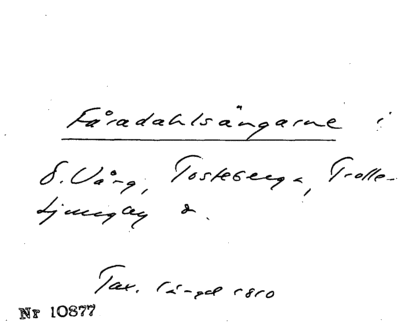 Fåradahlsängarne i
S. Vång, Tosteberga, Trolle-
Ljungby &.
Tax. längd 1810
Nr 10877